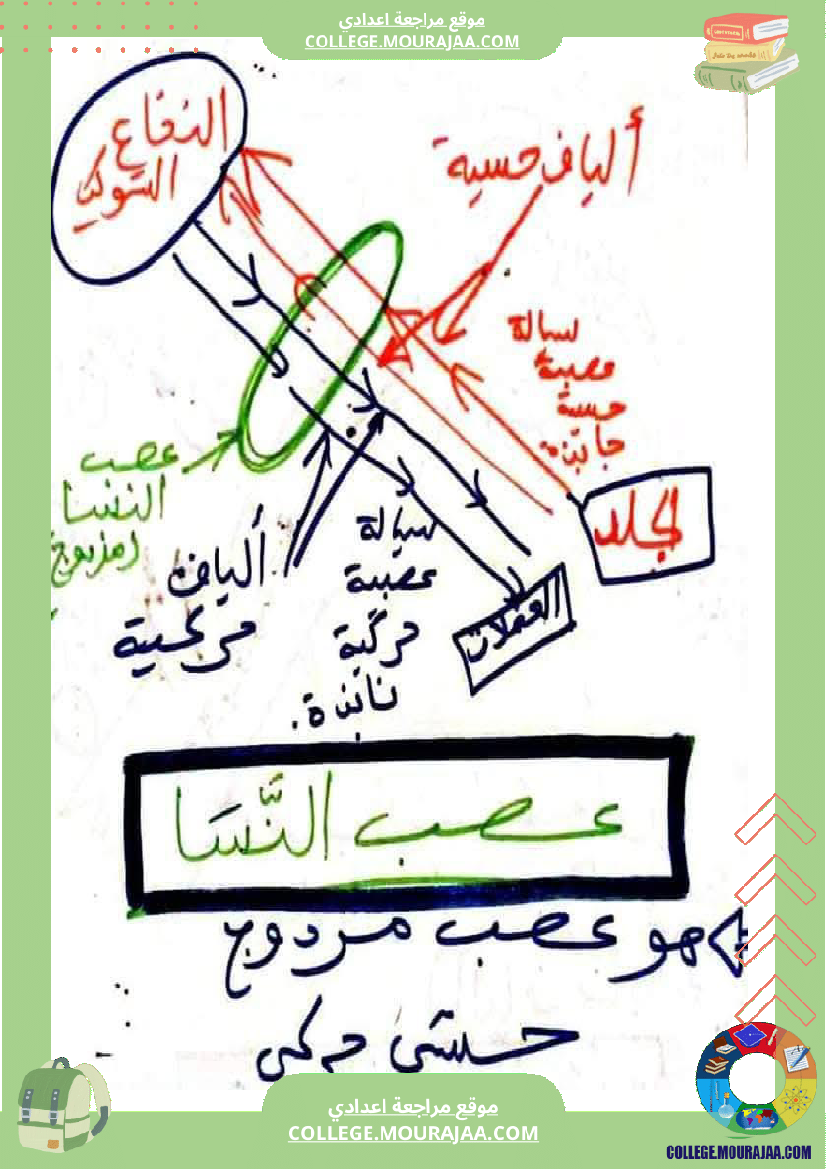 موقع مراجعة اعدادي
COLLEGE.MOURAJAA.COM
النخاع
الشوكي
ألياف حسية
سيالة
عصبية
حسية
جابذة.
الجلد
عصب
النسا
مزدوج
ألياف
حركية
سيالة
عصبية
حركية
نابذة.
العضلات
عصب النَّسَا
هو عصب مزدوج
حسي حركي
موقع مراجعة اعدادي
COLLEGE.MOURAJAA.COM
COLLEGE.MOURAJAA.COM